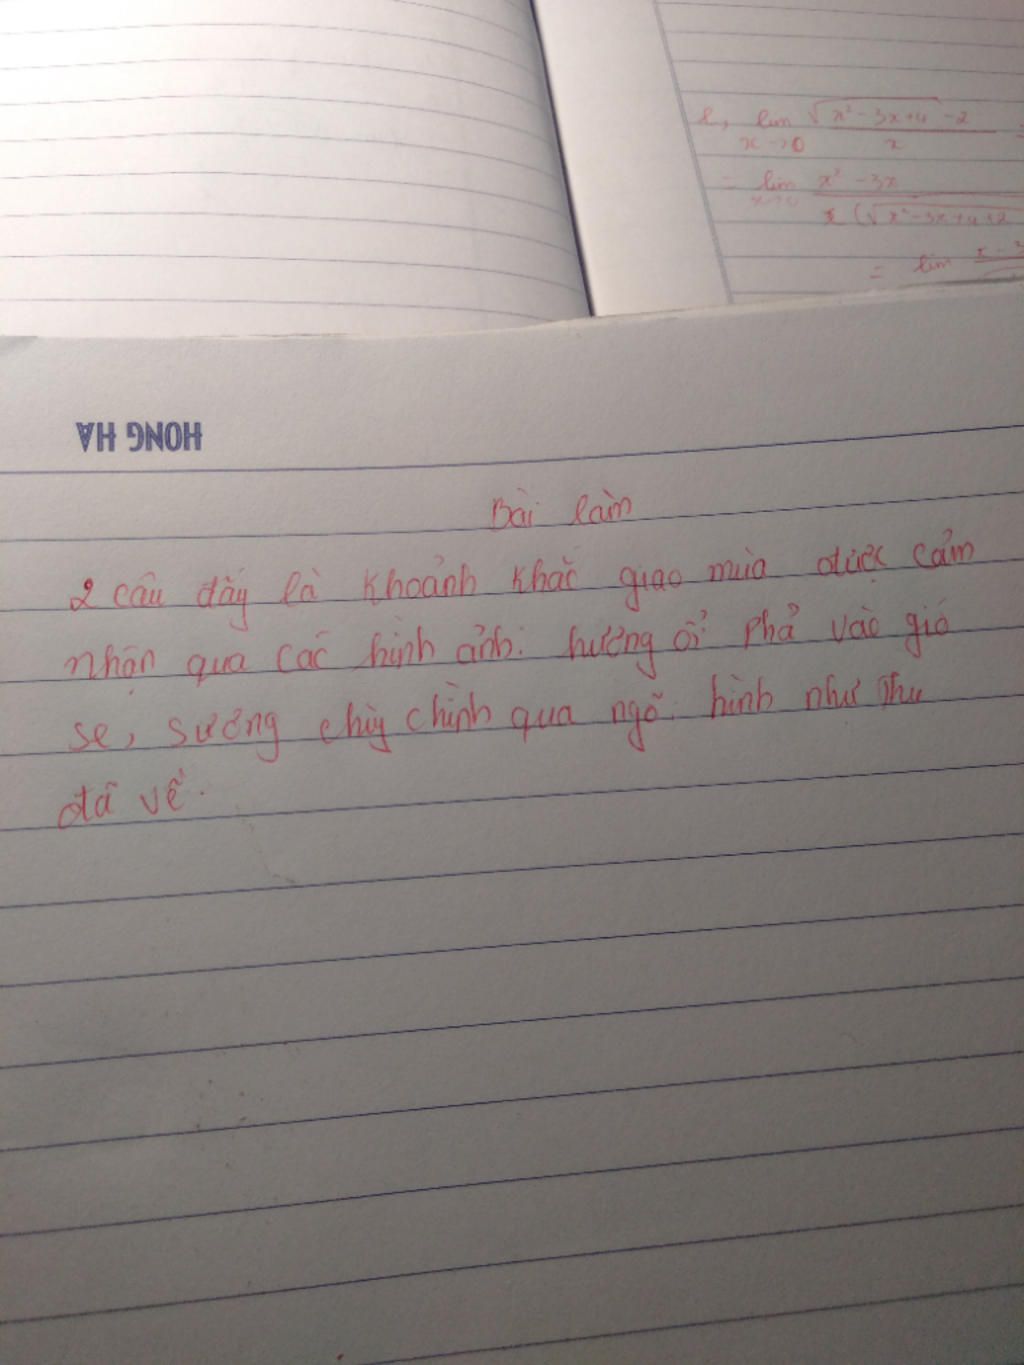 l, lim √x² - 3x + 4 - 2
x → 0 x
= lim x² - 3x
x→0 x (√x² - 3x + 4 + 2
= lim x - 3
HONG HA
Bài làm
2 câu đây là khoảnh khắc giao mùa được cảm
nhận qua các hình ảnh: hương ổi phả vào gió
se, sương chùng chình qua ngõ. hình như thu
đã về.